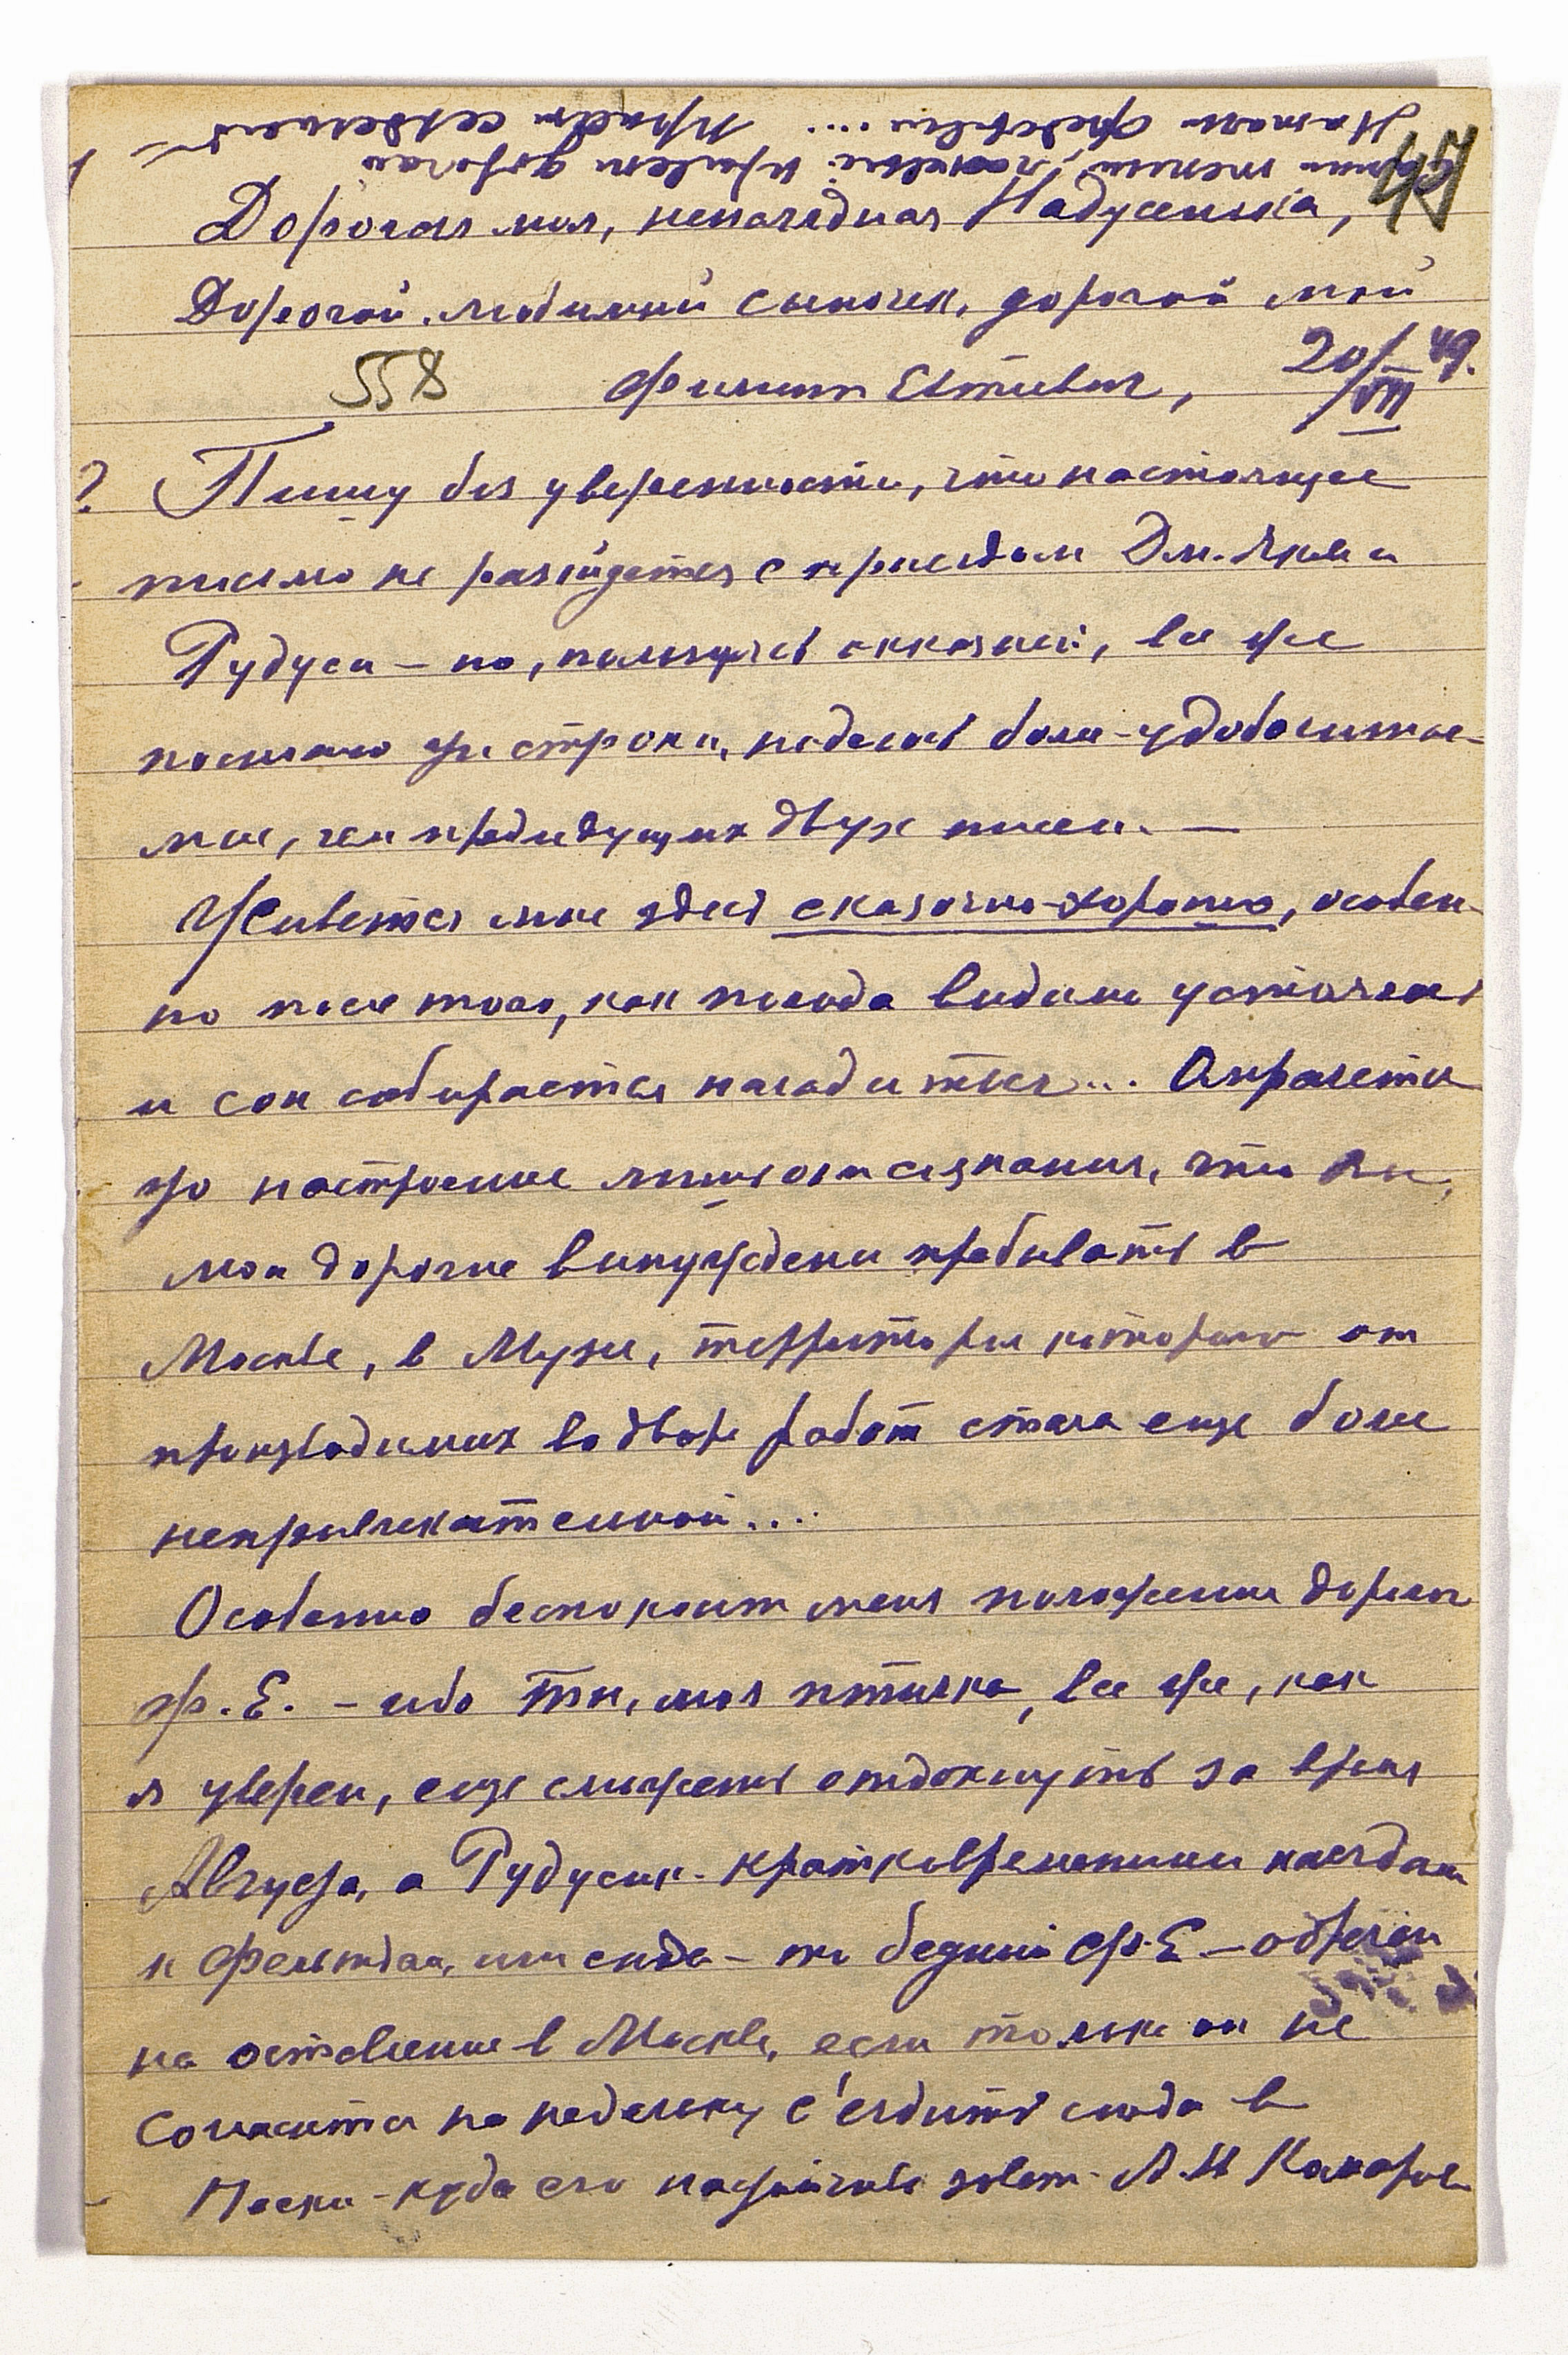 Самый теплый, ласковый привет дорогой
Привет сердечный
47
Дорогая моя, ненаглядная Надусенька,
Дорогой, любимый сыночек, дорогой мой
558 Филипп Евтивич, 20/VII 49.
? Пишу без уверенности, что настоящее
письмо не разойдется с приездом Дм. Яковл. и
Рудуси – но, пользуясь окказией, все же
посылаю эти строки, надеюсь более-удобочитае-
мые, чем предидущих двух писем. —
Живется мне здесь сказочно-хорошо, особен-
но после того, как погода видимо устоялась
и сон собирается наладиться... Омрачается
это настроение лишь от сознания, что вы,
мои дорогие вынуждены пребывать в
Москве, в Музее, территория которого от
производимых во дворе работ стала еще более
непривлекательной....
Особенно беспокоит меня положение дорогого
Ф. Е. – ибо ты, моя птичка, все же, как
я уверен, еще сможешь отдохнуть за время
Августа, а Рудусик - кратковременными наездами
к Фельтдам, или сюда – но бедный Ф. Е – обречен
на оставление в Москве, если только он не
согласится на недельку с'ездить сюда в
Пески - куда его настойчиво зовет А. Н Комаров